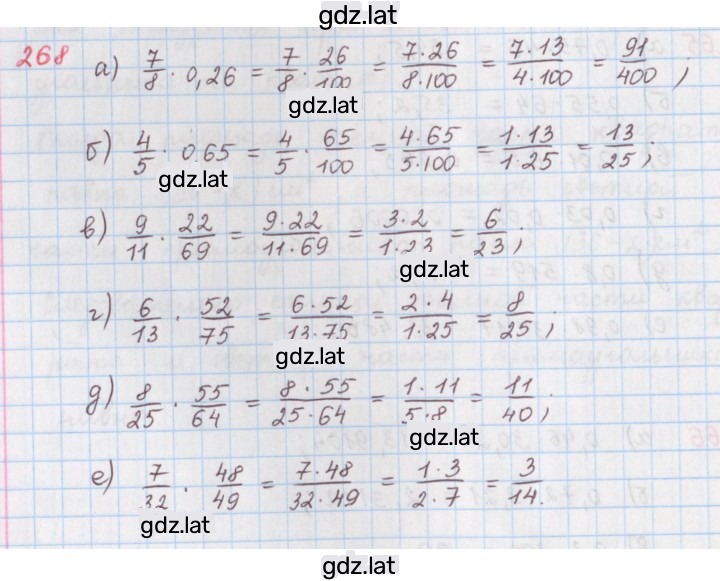 gdz.lat
268 а) 7/8 · 0,26 = 7/8 · 26/100 = 7·26/8·100 = 7·13/4·100 = 91/400 ;
gdz.lat
б) 4/5 · 0,65 = 4/5 · 65/100 = 4·65/5·100 = 1·13/1·25 = 13/25 ;
gdz.lat
в) 9/11 · 22/69 = 9·22/11·69 = 3·2/1·23 = 6/23 ;
gdz.lat
г) 6/13 · 52/75 = 6·52/13·75 = 2·4/1·25 = 8/25 ;
gdz.lat
д) 8/25 · 55/64 = 8·55/25·64 = 1·11/5·8 = 11/40 ;
gdz.lat
е) 7/32 · 48/49 = 7·48/32·49 = 1·3/2·7 = 3/14.
gdz.lat
gdz.lat